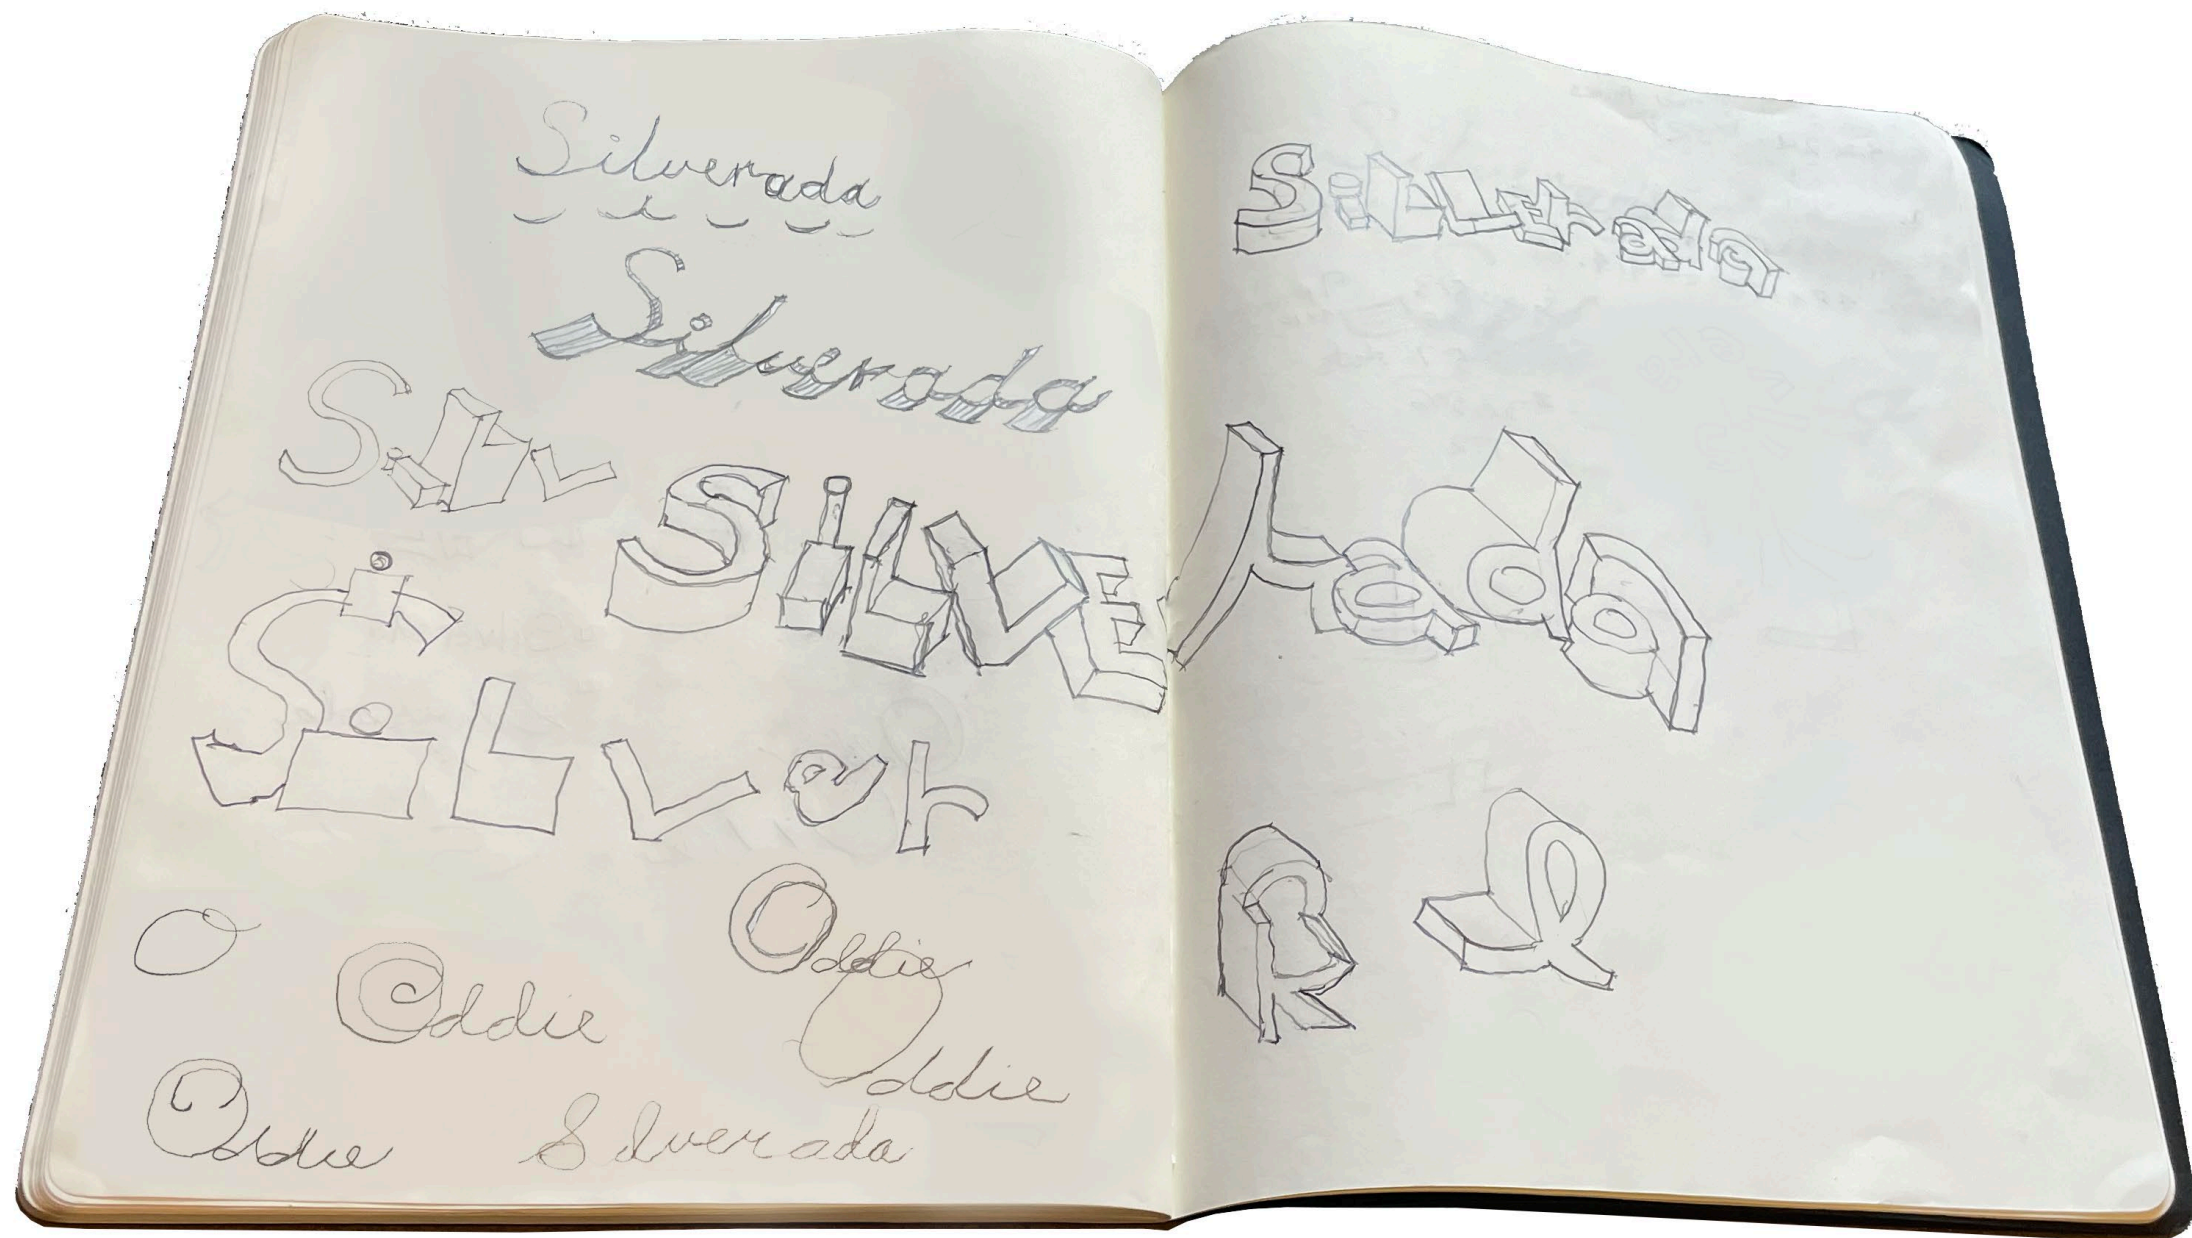 Silverada
Silverada
Silv
SiLVErada
SiLver
O
Oddie
Oddie
Oddie
Oddie
Silverada
SiLverada
R e